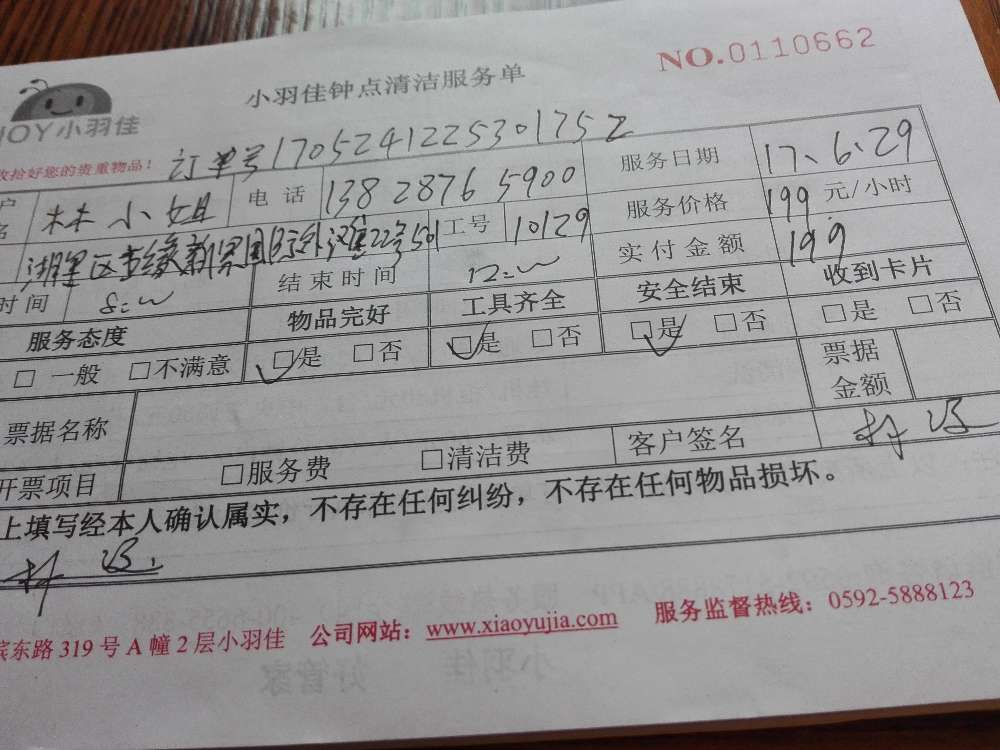 NO.0110662
小羽佳钟点清洁服务单
JOY小羽佳
收拾好您的贵重物品！ 订单号1705241225301752
林小姐 电话 13828765900 服务日期 17、6、29
服务价格 199 元/小时
湖里区 22号501 工号 10129 实付金额 199
时间 8: 结束时间 12:
服务态度 物品完好 工具齐全 安全结束 收到卡片
□ 一般 □不满意 □是 □否 □是 □否 □是 □否 □是 □否
票据名称 票据金额
开票项目 □服务费 □清洁费 客户签名 林
上填写经本人确认属实，不存在任何纠纷，不存在任何物品损坏。
林
滨东路 319 号 A 幢 2 层小羽佳 公司网站：www.xiaoyujia.com 服务监督热线：0592-5888123